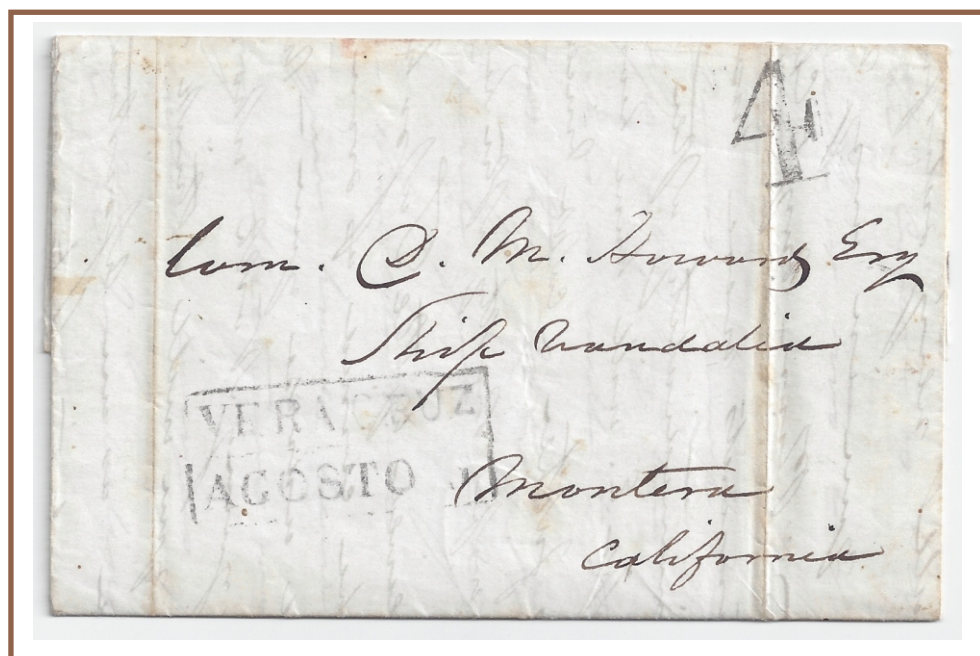 4
Wm. D. M. Howard Esq
Ship Vandalia
VERACRUZ
AGOSTO
Montera
California